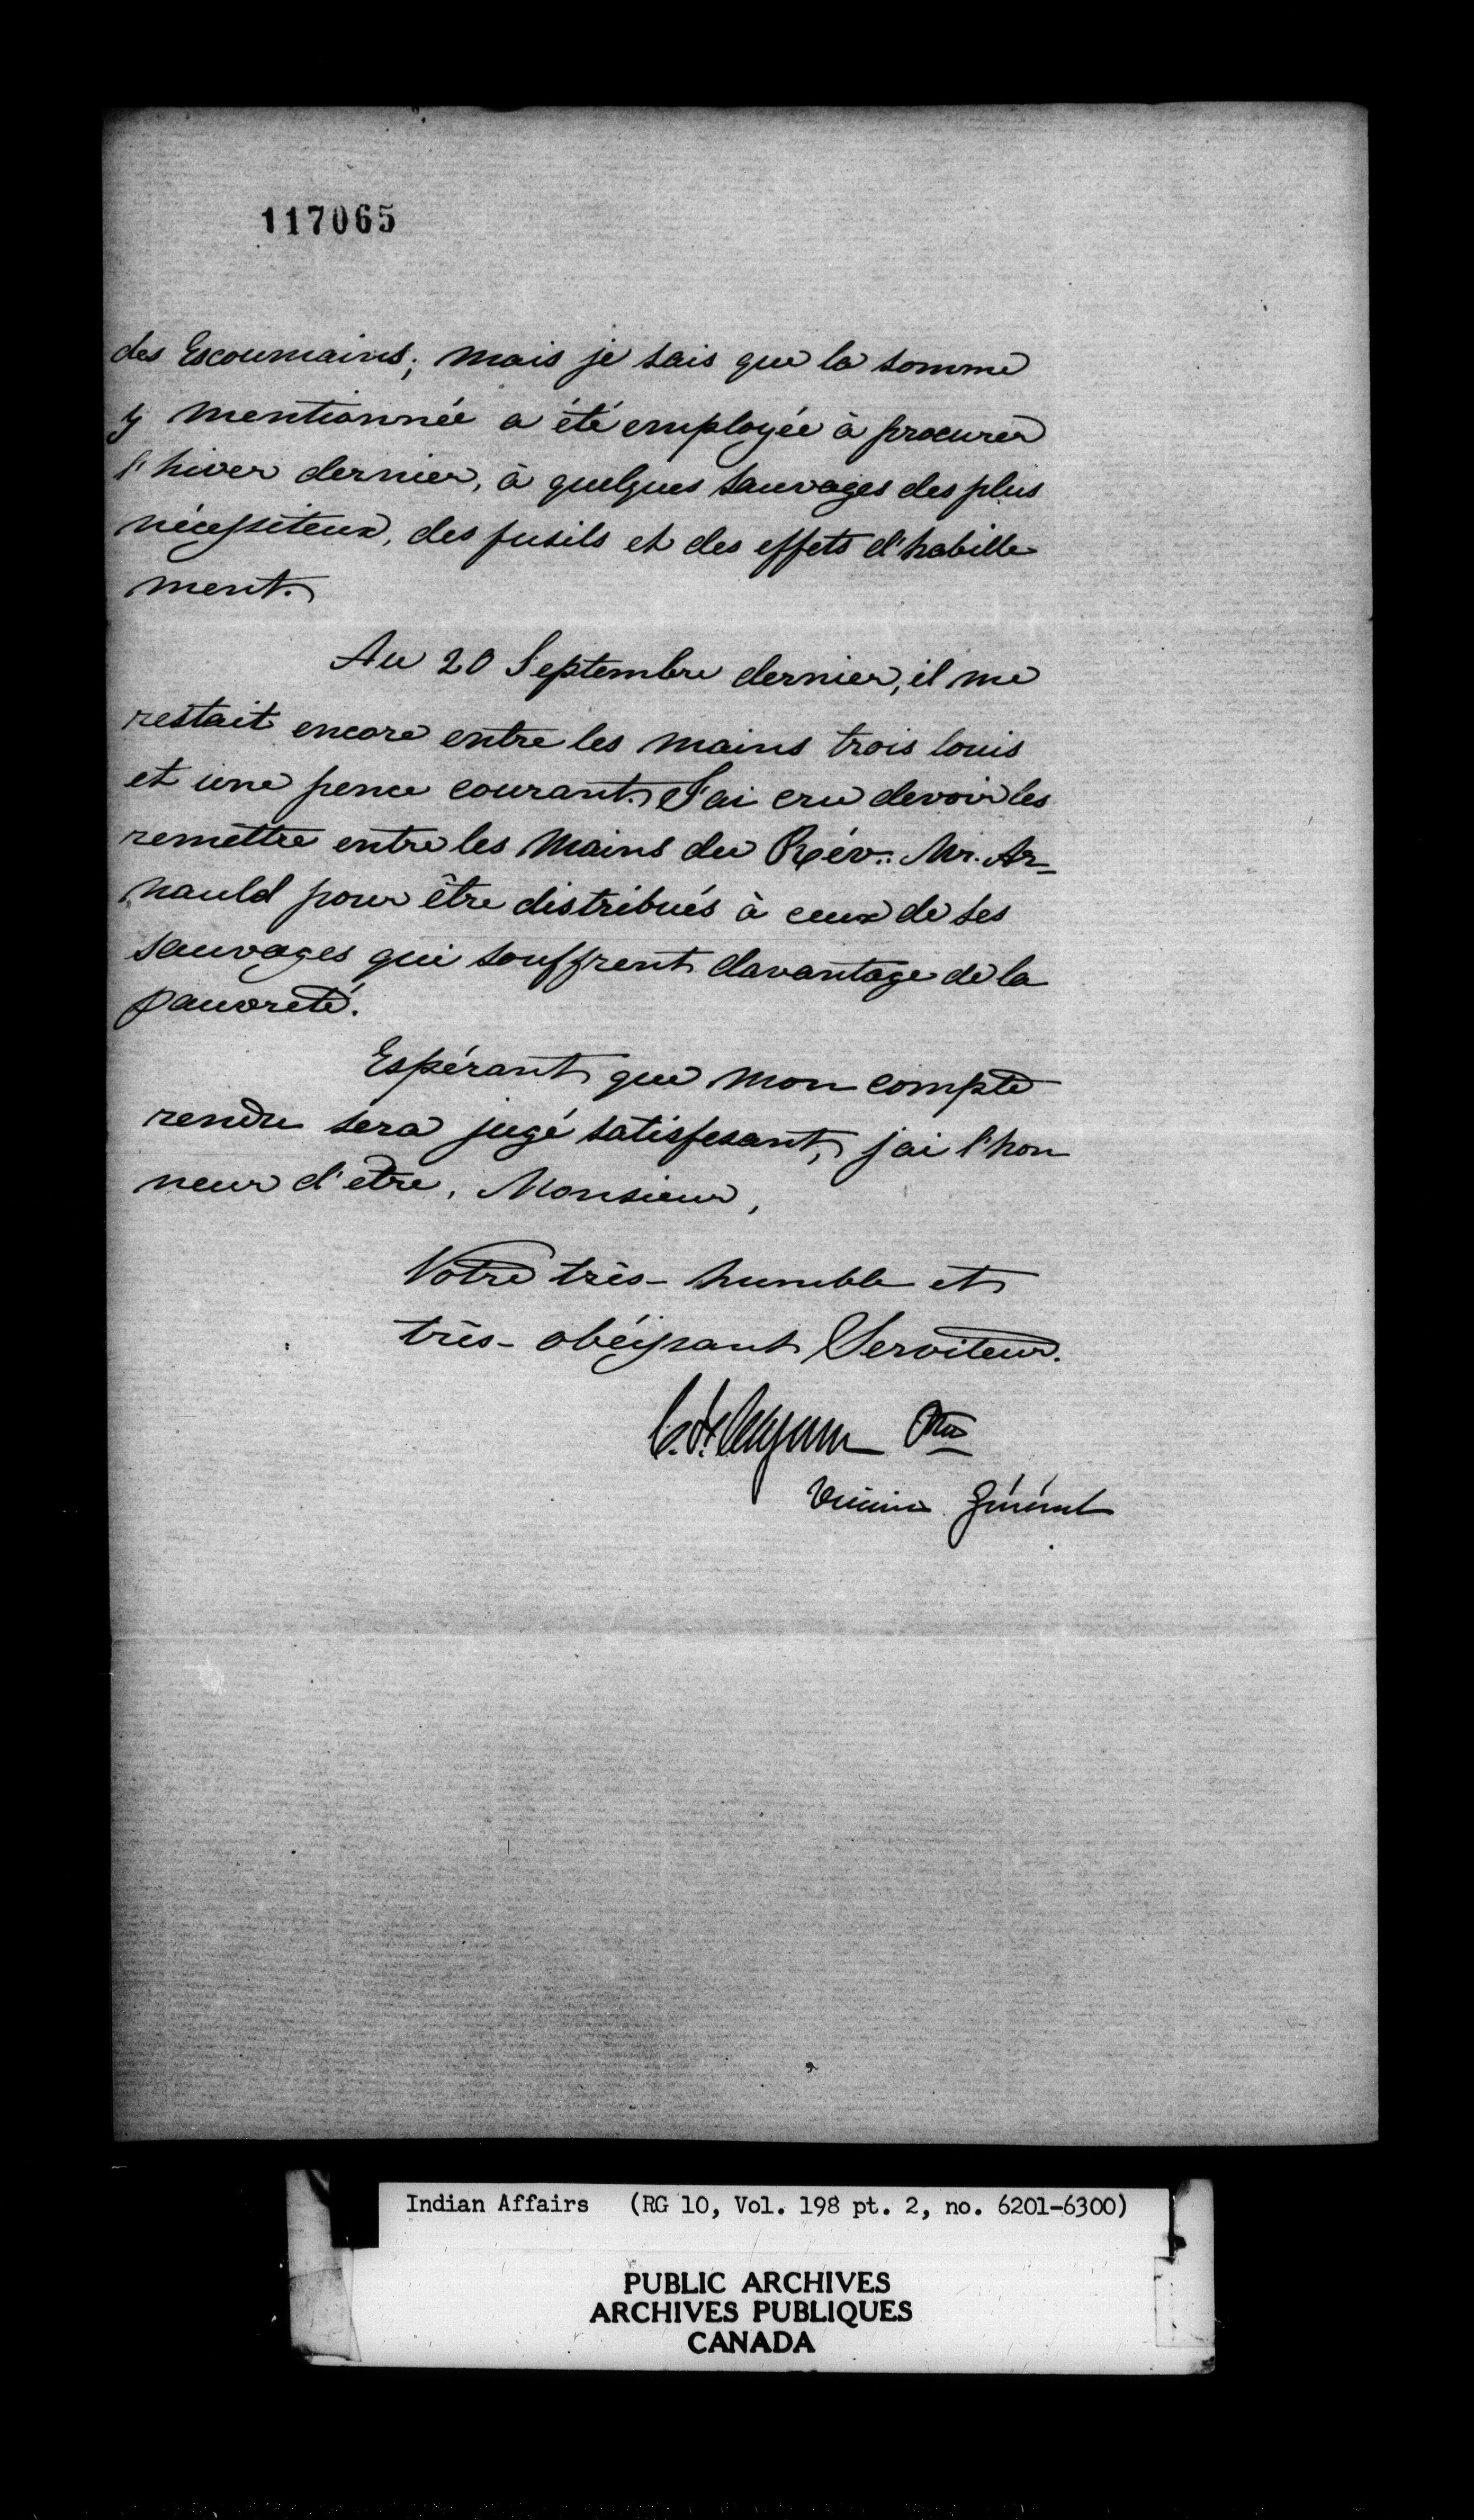 117065
des Escoumains; mais je sais que la somme
y mentionnée a été employée à procurer
l'hiver dernier, à quelques sauvages des plus
nécessiteux, des fusils et des effets d'habille
ment.
Au 20 Septembre dernier, il me
restait encore entre les mains trois louis
et une pence courant. J'ai cru devoir les
remettre entre les mains du Rév: Mr. Ar-
nauld pour être distribués à ceux de ses
sauvages qui souffrent davantage de la
pauvreté.
Espérant que mon compte
rendu sera jugé satisfesant, j'ai l'hon
neur d'etre, Monsieur,
Votre très-humble et
très-obéissant Serviteur.
C. F. Ptre
Vicaire Général
Indian Affairs (RG 10, Vol. 198 pt. 2, no. 6201-6300)
PUBLIC ARCHIVES
ARCHIVES PUBLIQUES
CANADA